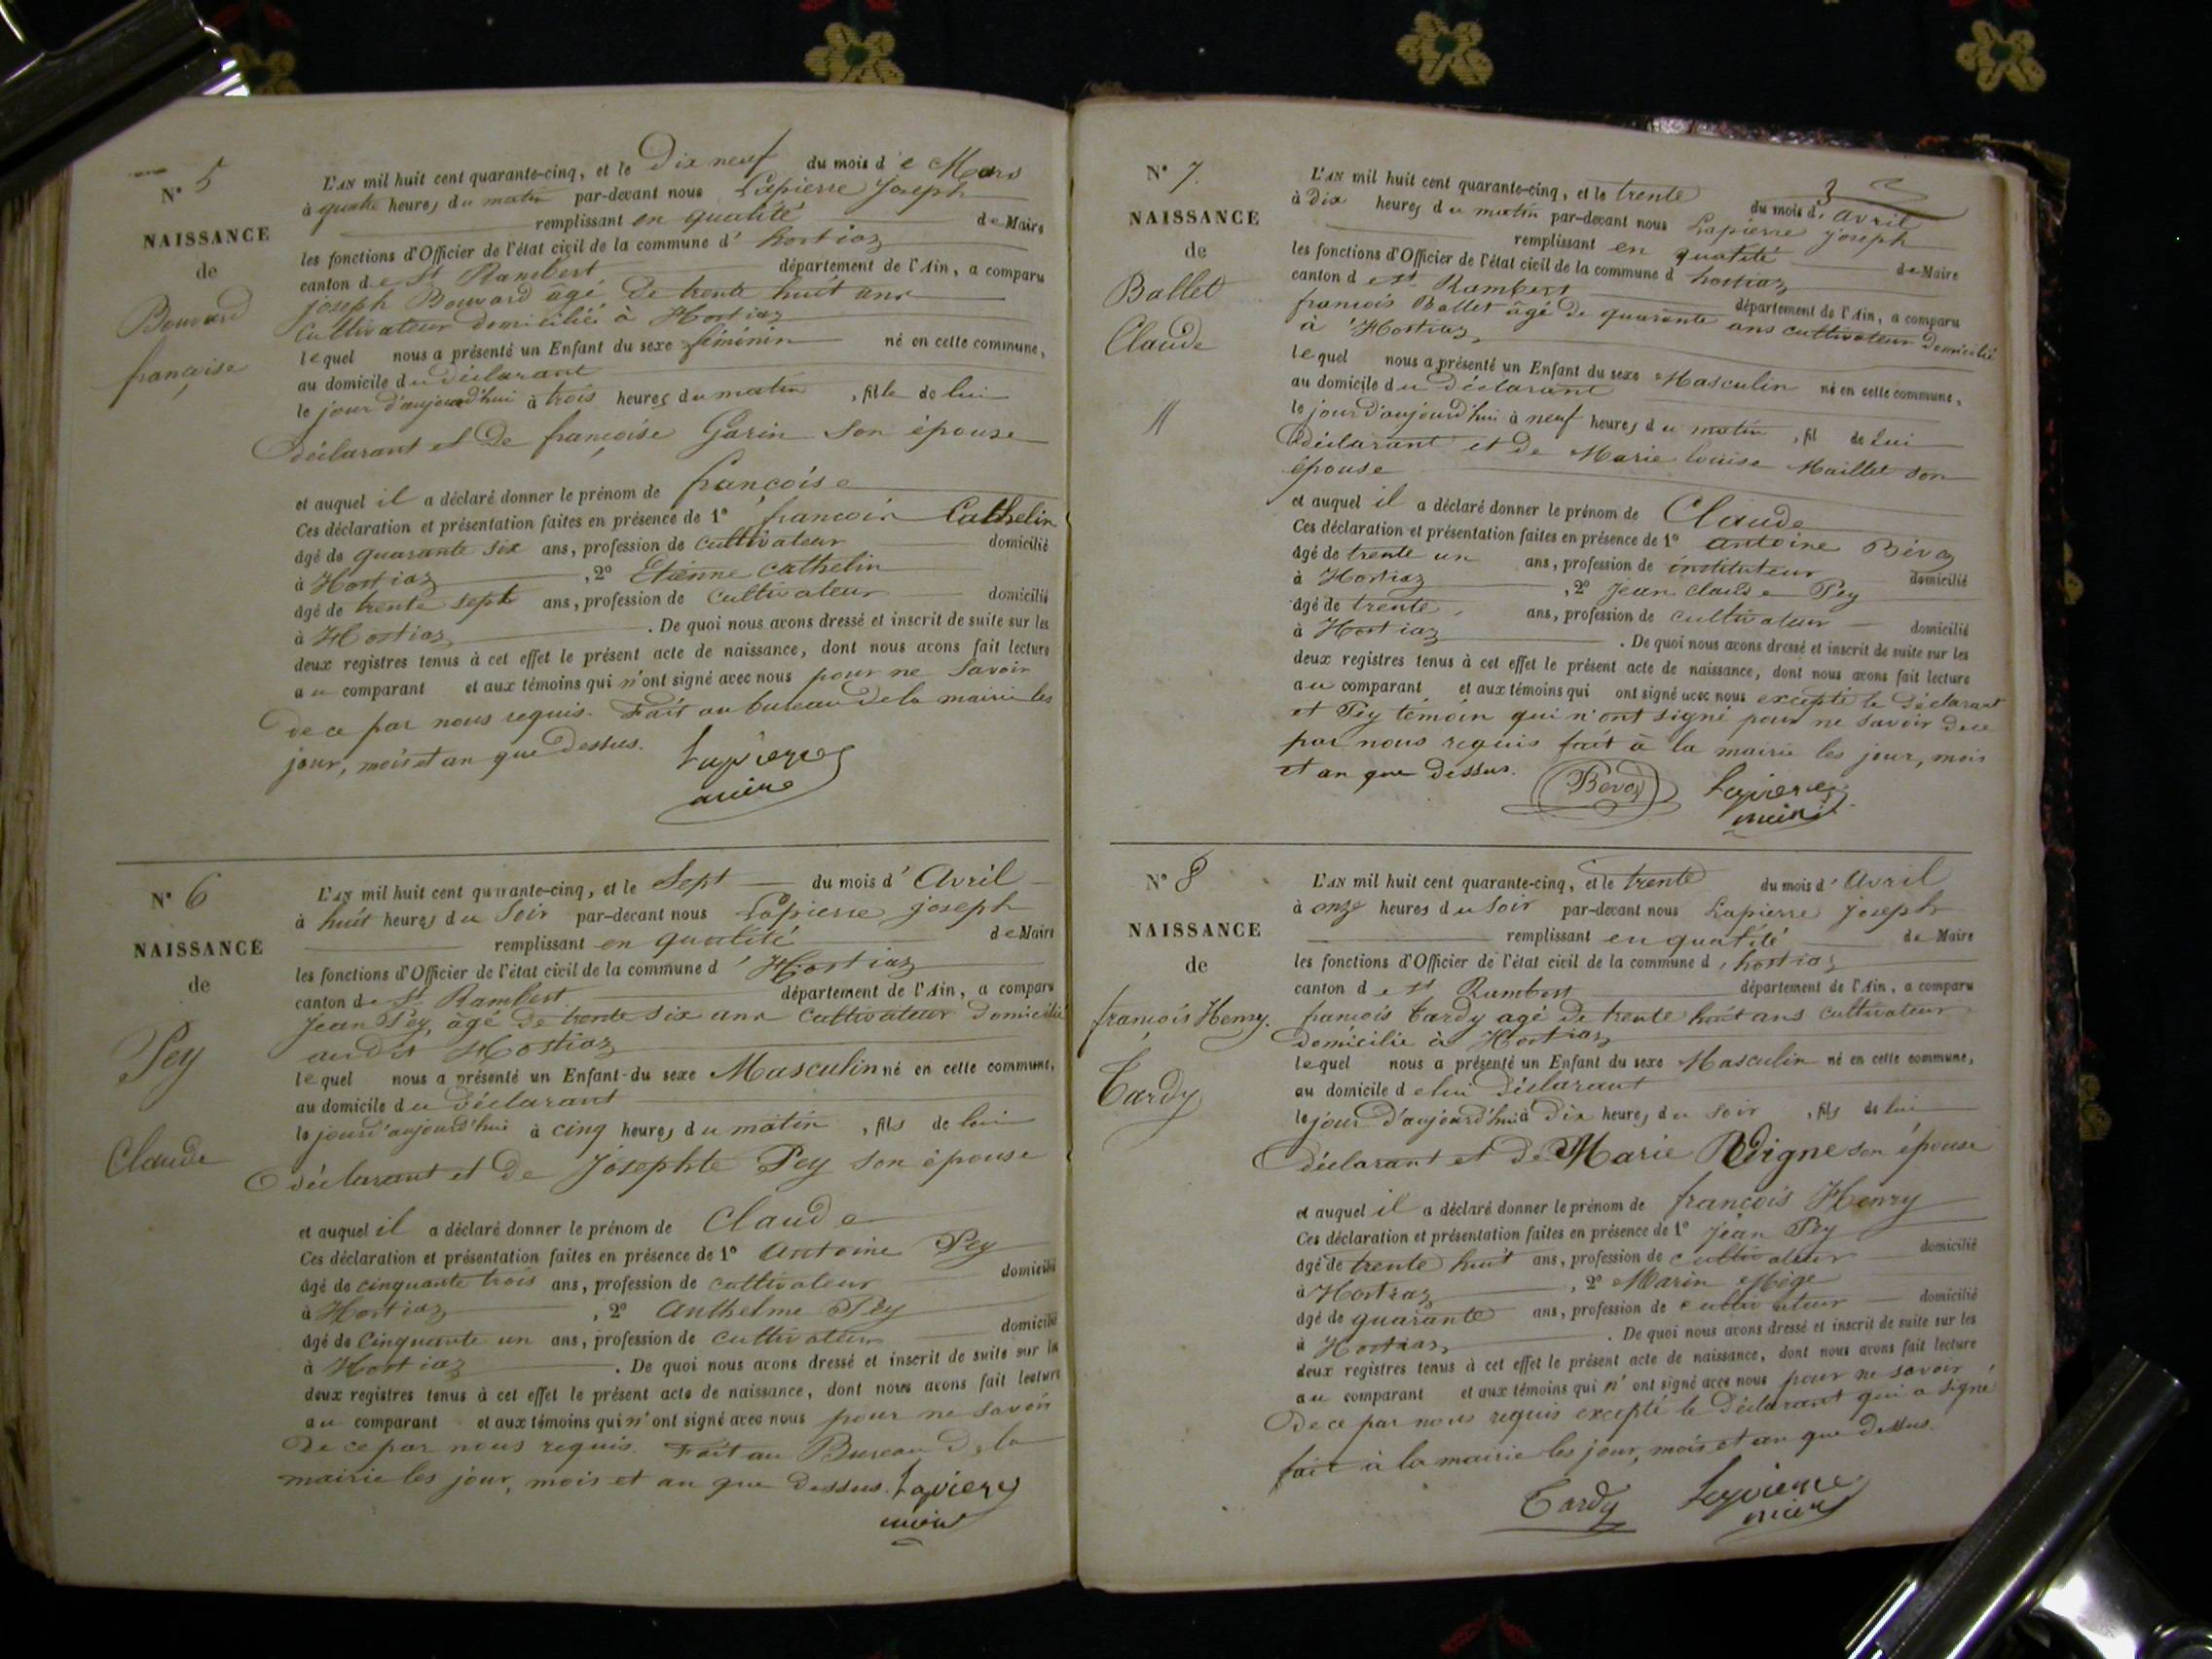 N° 5
NAISSANCE
de
Bouvard
françoise
L'AN mil huit cent quarante-cinq, et le Dix neuf du mois de Mars
à quatre heures du matin par-devant nous Lapierre Joseph
remplissant en qualité de Maire
les fonctions d'Officier de l'état civil de la commune d'hostiaz
canton de St Rambert département de l'Ain, a comparu
joseph Bouvard âgé de trente huit ans
Cultivateur domicilié à Hostiaz
lequel nous a présenté un Enfant du sexe féminin né en cette commune,
au domicile du déclarant
le jour d'aujourd'hui à trois heures du matin, fille de lui
déclarant et de françoise Garin son épouse
et auquel il a déclaré donner le prénom de françoise
Ces déclaration et présentation faites en présence de 1° françois Cathelin
âgé de quarante six ans, profession de cultivateur domicilié
à Hostiaz, 2° Etienne Cathelin
âgé de trente sept ans, profession de Cultivateur domicilié
à Hostiaz. De quoi nous avons dressé et inscrit de suite sur les
deux registres tenus à cet effet le présent acte de naissance, dont nous avons fait lecture
au comparant et aux témoins qui n'ont signé avec nous pour ne savoir
de ce par nous requis. Fait au bureau de la mairie les
jour, mois et an que dessus.
Lapierre
maire
N° 6
NAISSANCE
de
Pey
Claude
L'AN mil huit cent quarante-cinq, et le Sept du mois d'Avril
à huit heures du Soir par-devant nous Lapierre joseph
remplissant en qualité de Maire
les fonctions d'Officier de l'état civil de la commune d'Hostiaz
canton de St Rambert département de l'Ain, a comparu
Jean Pey, âgé de trente six ans Cultivateur domicilié
audit Hostiaz
lequel nous a présenté un Enfant du sexe Masculin né en cette commune,
au domicile du déclarant
le jour d'aujourd'hui à cinq heures du matin, fils de lui
déclarant et de Josephte Pey son épouse
et auquel il a déclaré donner le prénom de Claude
Ces déclaration et présentation faites en présence de 1° Antoine Pey
âgé de cinquante trois ans, profession de cultivateur domicilié
à Hostiaz, 2° Anthelme Pey
âgé de Cinquante un ans, profession de cultivateur domicilié
à Hostiaz. De quoi nous avons dressé et inscrit de suite sur les
deux registres tenus à cet effet le présent acte de naissance, dont nous avons fait lecture
au comparant et aux témoins qui n'ont signé avec nous pour ne savoir
de ce par nous requis. Fait au Bureau de la
mairie les jour, mois et an que dessus. Lapierre
maire
3
N° 7.
NAISSANCE
de
Ballet
Claude
L'AN mil huit cent quarante-cinq, et le trente du mois d'avril
à dix heures du matin par-devant nous Lapierre joseph
remplissant en qualité de Maire
les fonctions d'Officier de l'état civil de la commune d hostiaz
canton de St Rambert département de l'Ain, a comparu
françois Ballet âgé de quarante ans cultivateur domicilié
à Hostiaz
lequel nous a présenté un Enfant du sexe Masculin né en cette commune,
au domicile du déclarant
le jour d'aujourd'hui à neuf heures du matin, fil de lui
déclarant et de Marie louise Maillet son
épouse
et auquel il a déclaré donner le prénom de Claude
Ces déclaration et présentation faites en présence de 1° antoine Bévoz
âgé de trente un ans, profession de instituteur domicilié
à Hostiaz, 2° Jean claude Pey
âgé de trente ans, profession de cultivateur domicilié
à Hostiaz. De quoi nous avons dressé et inscrit de suite sur les
deux registres tenus à cet effet le présent acte de naissance, dont nous avons fait lecture
au comparant et aux témoins qui ont signé avec nous excepté le déclarant
et Pey témoin qui n'ont signé pour ne savoir de ce
par nous requis fait à la mairie les jour, mois
et an que dessus. Bévoz Lapierre
maire
N° 8
NAISSANCE
de
françois Henry.
Tardy
L'AN mil huit cent quarante-cinq, et le trente du mois d'Avril
à onze heures du soir par-devant nous Lapierre Joseph
remplissant en qualité de Maire
les fonctions d'Officier de l'état civil de la commune d'hostiaz
canton de St Rambert département de l'Ain, a comparu
françois Tardy agé de trente huit ans cultivateur
domicilié à Hostiaz
lequel nous a présenté un Enfant du sexe Masculin né en cette commune,
au domicile de lui déclarant
le jour d'aujourd'hui à dix heures du soir, fils de lui
déclarant et de Marie Digne son épouse
et auquel il a déclaré donner le prénom de françois Henry
Ces déclaration et présentation faites en présence de 1° Jean Pey
âgé de trente huit ans, profession de cultivateur domicilié
à Hostiaz, 2° Marin Mège
âgé de quarante ans, profession de cultivateur domicilié
à Hostiaz. De quoi nous avons dressé et inscrit de suite sur les
deux registres tenus à cet effet le présent acte de naissance, dont nous avons fait lecture
au comparant et aux témoins qui n'ont signé avec nous pour ne savoir
de ce par nous requis excepté le déclarant qui a signé
fait à la mairie les jour, mois et an que dessus.
Tardy Lapierre
maire